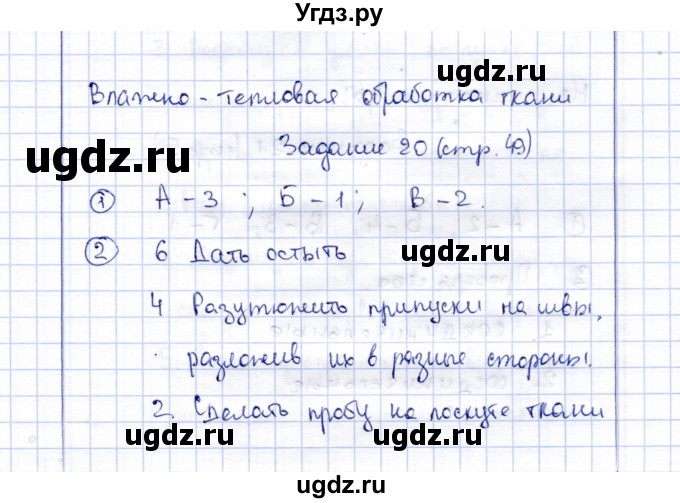 Угдз.ру
ugdz.ru
Влажно-тепловая обработка ткани
Задание 20 (стр. 49)
ugdz.ru
① А-3; Б-1; В-2.
② 6 Дать остыть
ugdz.ru
4 Разутюжить припуски на швы,
разложив их в разные стороны.
2. Сделать пробу на лоскуте ткани
ugdz.ru
ugdz.ru
Угдз.ру